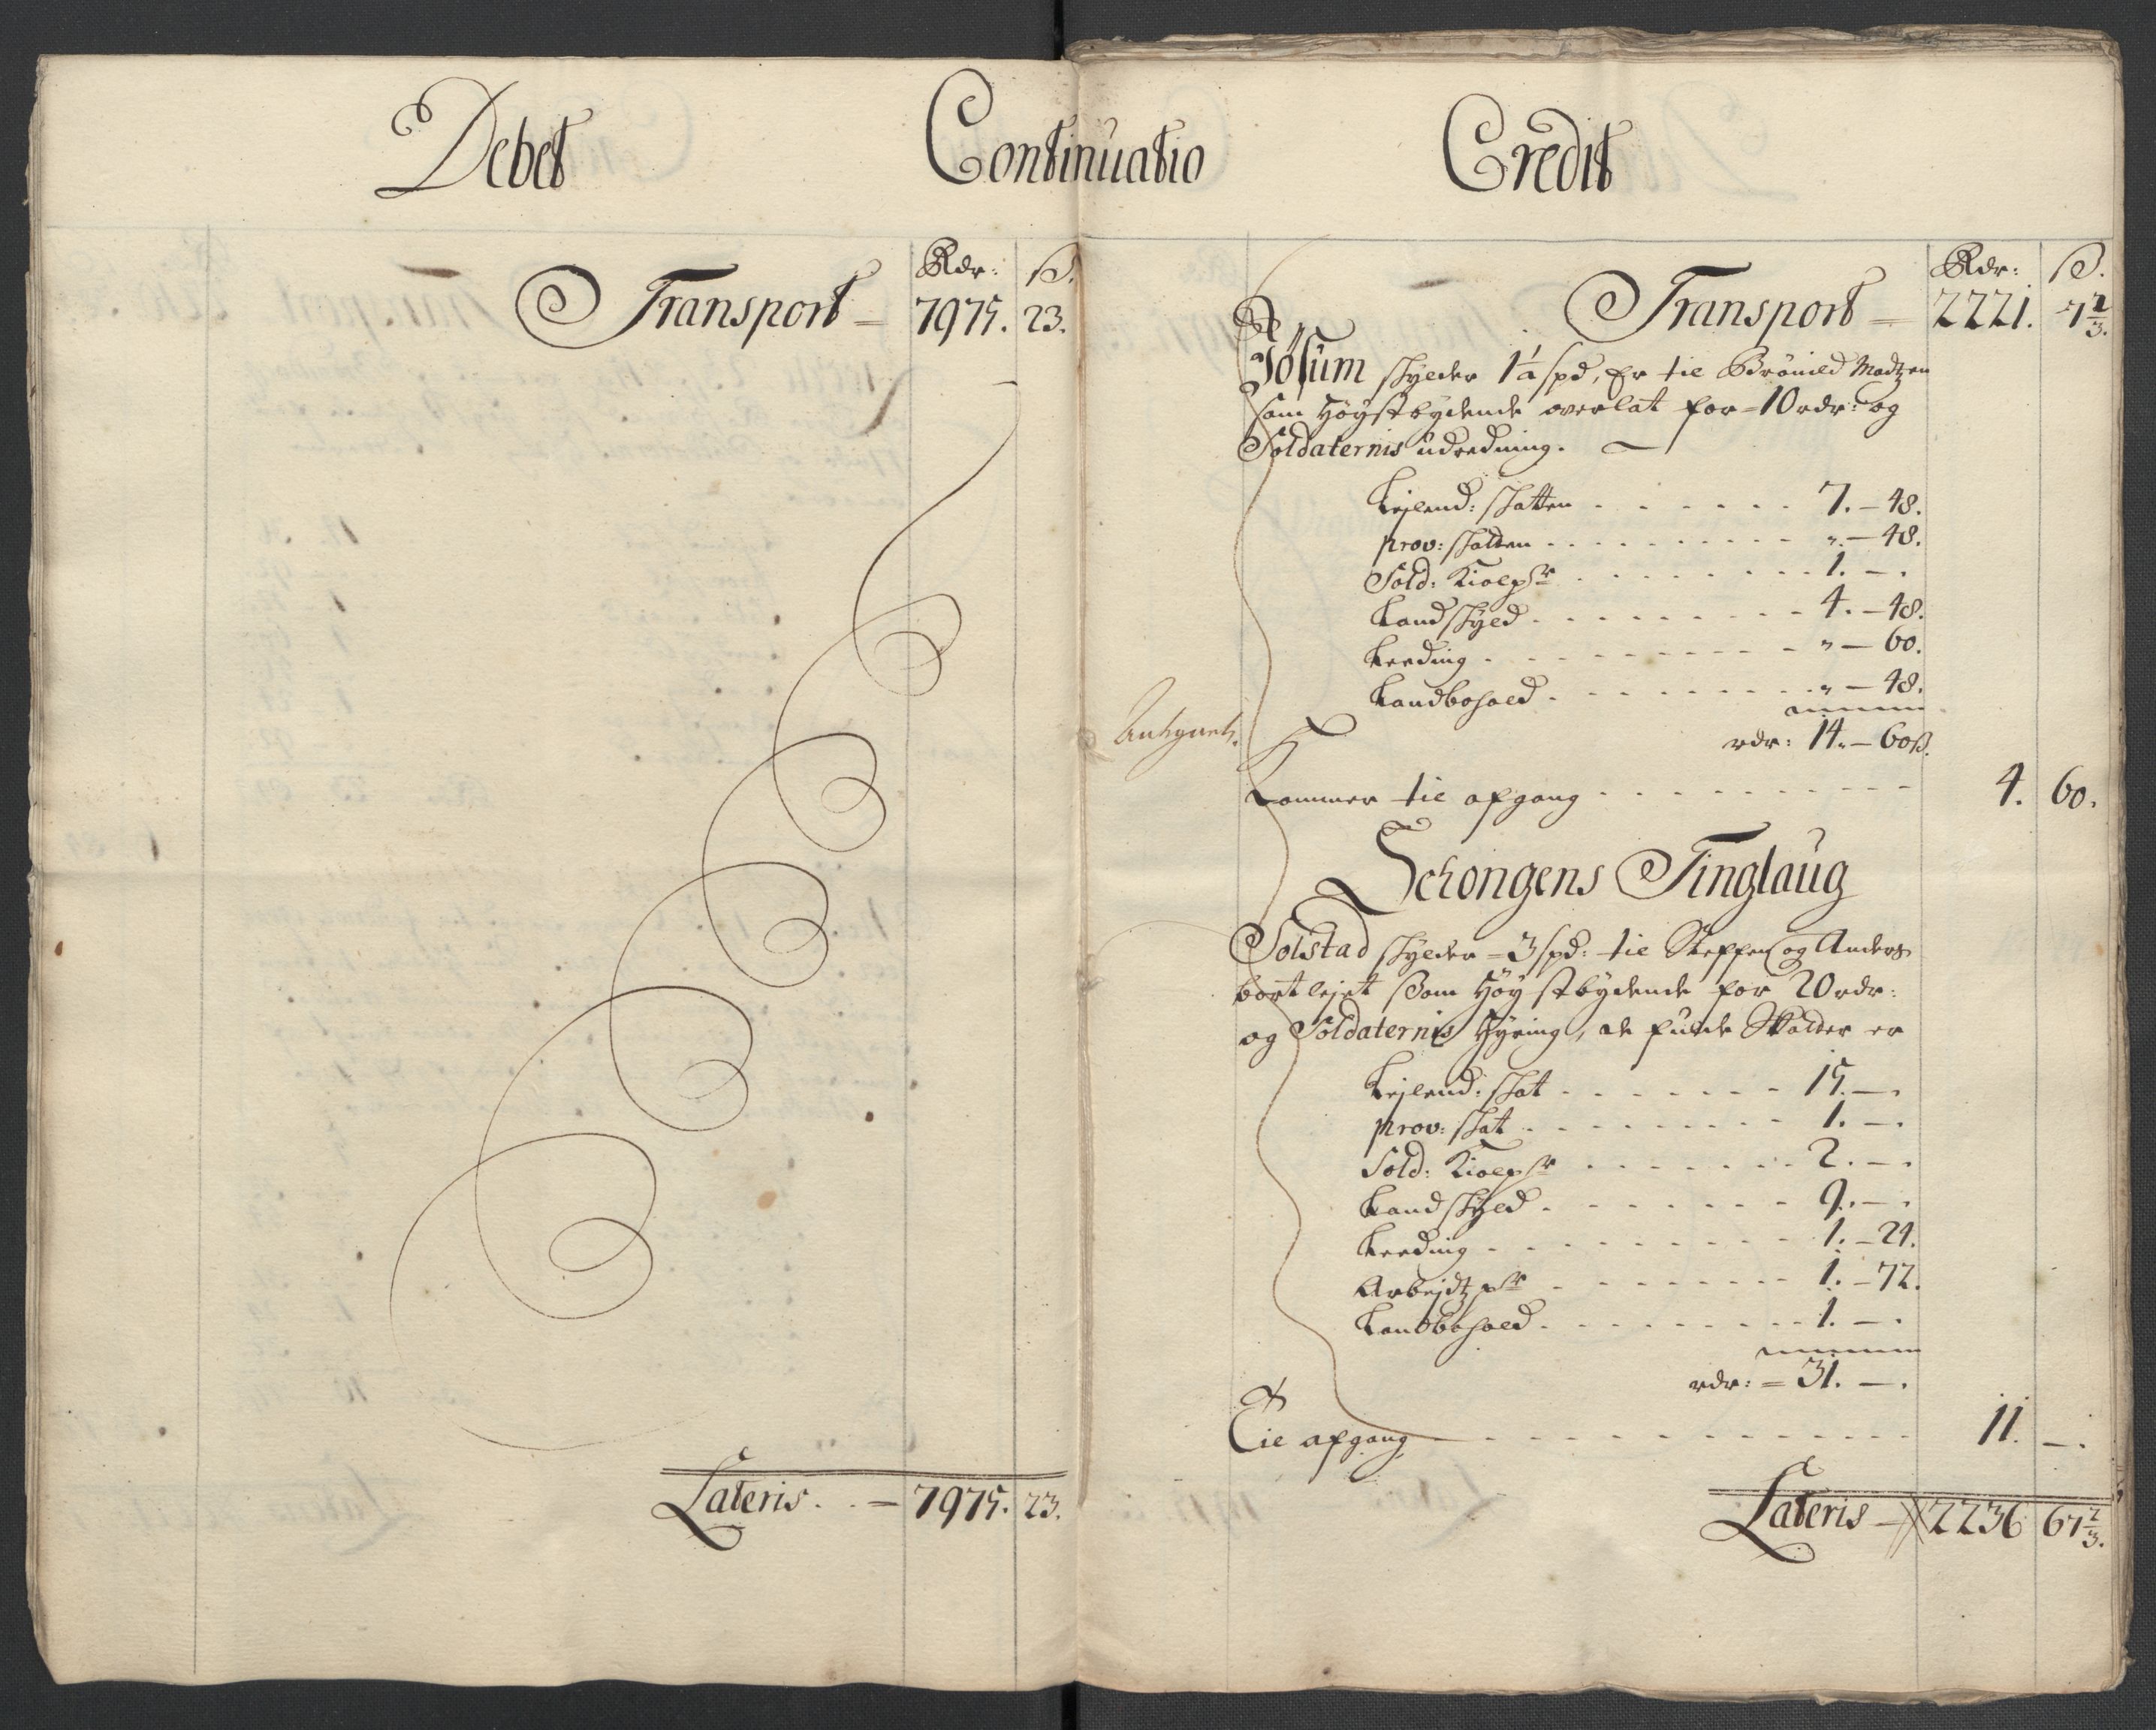 Debet
Continuatio
Credit
Rdr: ß.
Transport – 7975. 23.
Lateris . . – 7975. 23.
Rdr: ß.
Transport – 2221. 7 2/3.
Jøsum skylder 1½ spd, Er til Madtzen
som Høystbydende overlat for – 10 rdr: og
Soldaternis udredning. –
Lejlend: skatten . . . . . . 7. – 48.
prov: skatten . . . . . . . . . " – 48.
Sold: . . . . . . . . 1. – .
Landskyld . . . . . . . . 4. – 48.
Leeding . . . . . . . . . . " – 60.
Landbohold . . . . . . . . " – 48.
rdr: 14. – 60 ß.
Antegnet.
Kommer til afgang . . . . . . . . . . . 4. 60.
Schongens Tinglaug
Solstad skylder – 3 spd: til Steffen og Anders
bortlejet som Høystbydende for 20 rdr:
og Soldaternis Hyring, de fulde Skatter er
Lejlend: skat . . . . . . . 15. – .
prov: skat . . . . . . . . . 1. – .
Sold: . . . . . . . 2. – .
Landskyld . . . . . . . 9. – .
Leeding . . . . . . . . . 1. – 24.
Arbejdtz . . . . . . . . 1. – 72.
Landbohold . . . . . . . . . 1. – .
rdr: = 31. – .
Til afgang . . . . . . . . . . . . . 11. – .
Lateris – 2236 67 2/3.